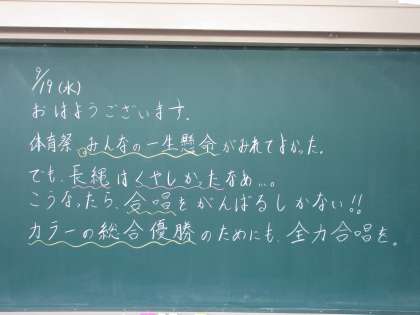 9/19(水)
おはようございます。
体育祭、みんなの一生懸命がみれてよかった。
でも、長縄はくやしかったなぁ…。
こうなったら、合唱をがんばるしかない!!
カラーの総合優勝のためにも、全力合唱を。